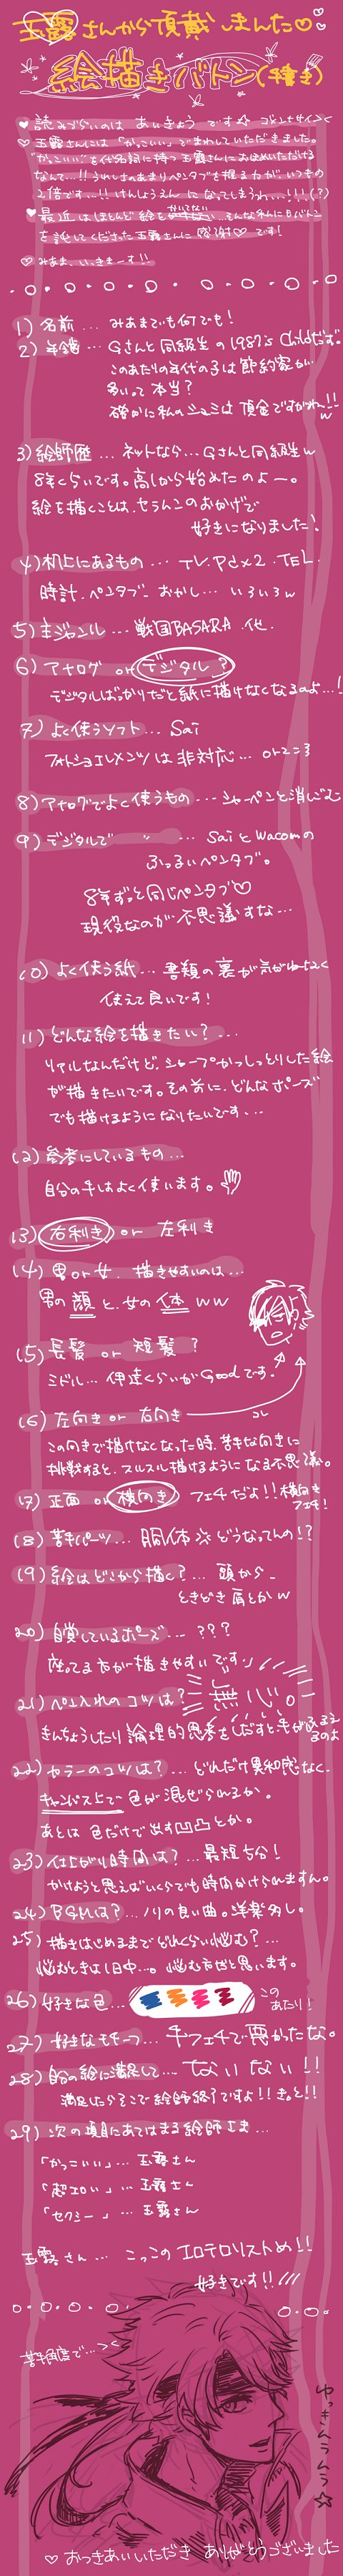 玉露さんから頂戴しまんた♡
絵描きバトン(手書き)
♥読みづらいのは あいきょう です☆ ゴメンナサイ><
♡玉露さんには「かっこいい」でまわしていただきました。
"かっこいい"を代名詞に持つ玉露さんにおほめいただける
なんて…!!うれしさのあまりペンタブを捏え方がいつもの
2倍です…!!けんしょうえんになってしまうわ…!!!(?)
♥最近はほとんど絵をかいてない…そんな私に日バトン
を託してくださった玉露さんに感謝♡です!
♡みあま、いっきまーす!!
1) 名前… みあまでも何でも!
2) 年齢… Gさんと同級生の1987's Childだず。
このあたりの年代の子は節約家が
多いって本当?
確かに私のシュミは貯金ですがねw!!
3) 絵師歴… ネットなら…Gさんと同級生w
8年くらいです。高1から始めたのよー。
絵を描くことは、セラムンのおかげで
好きになりました!
4) 机上にあるもの… TV.PC×2.TEL.
時計.ペンタブ.おかし… いろいろw
5) 主ジャンル… 戦国BASARA.他.
6) アナログ or デジタル?
デジタルばっかりだと紙に描けなくなるのよ…!
7) よく使うソフト… Sai
フォトショエレメンツは非対応… orz=3
8) アナログでよく使うもの… シャーペンと消しゴム
9) デジタルで 〃 … SaiとWacomの
ふっるいペンタブ。
8年ずっと同じペンタブ♡
現役なのが不思議すな…
10) よく使う紙… 書類の裏が気がねなく
使えて良いです!
11) どんな絵を描きたい?…
リアルなんだけど、シャープかつしっとりした絵
が描きたいです。その前に、どんなポーズ
でも描けるようになりたいです…
12) 参考にしているもの…
自分の手はよく使います。
13) 右利き or 左利き
14) 男 or 女. 描きやすいのは…
男の顔と、女の体ww
15) 長髪 or 短髪?
ミドル… 伊達くらいがGoodです。
16) 左向き or 右向き
コレ
この向きで描けなくなった時、苦手な向きに
挑戦すると、スルスル描けるようになる不思議。
17) 正面 or 横向き フェチだよ!!横向き
フェチ!
18) 苦手パーツ… 胴体 どうなってんの!?
19) 絵はどこから描く?… 頭から
ときどき肩とかw
20) 自賛しているポーズ… ???
座ってる方が描きやすいです
21) ペン入れのコツは? 無心。
きんちょうしたり論理的思考をしだすと手がふるえ
るのよ
22) カラーのコツは?… どれだけ異和感なく
キャンバス上で色が混ぜられるか。
あとは色だけで出す凹凸とか。
23) 仕上がり時間は?… 最短5分!
かけようと思えばいくらでも時間かけられますん。
24) BGMは?… ノリの良い曲。洋楽多し。
25) 描きはじめるまでどれくらい悩む?…
悩むときは1日中…。悩む方だと思います。
26) 好きな色… この
あたり!
27) 好きなモチーフ… 手フェチで悪かったな。
28) 自分の絵に満足して… ないない!!
満足したらそこで絵師終了ですよ!!きっと!!
29) 次の項目にあてはまる絵師さま…
「かっこいい」… 玉露さん
「超エロい」… 玉露さん
「セクシー」… 玉露さん
玉露さん… こっこのエロテロリストめ!!
好きです!!///
苦手角度で…><
ゆっきんラムラ☆
♡おつきあいいただき ありがとうございました